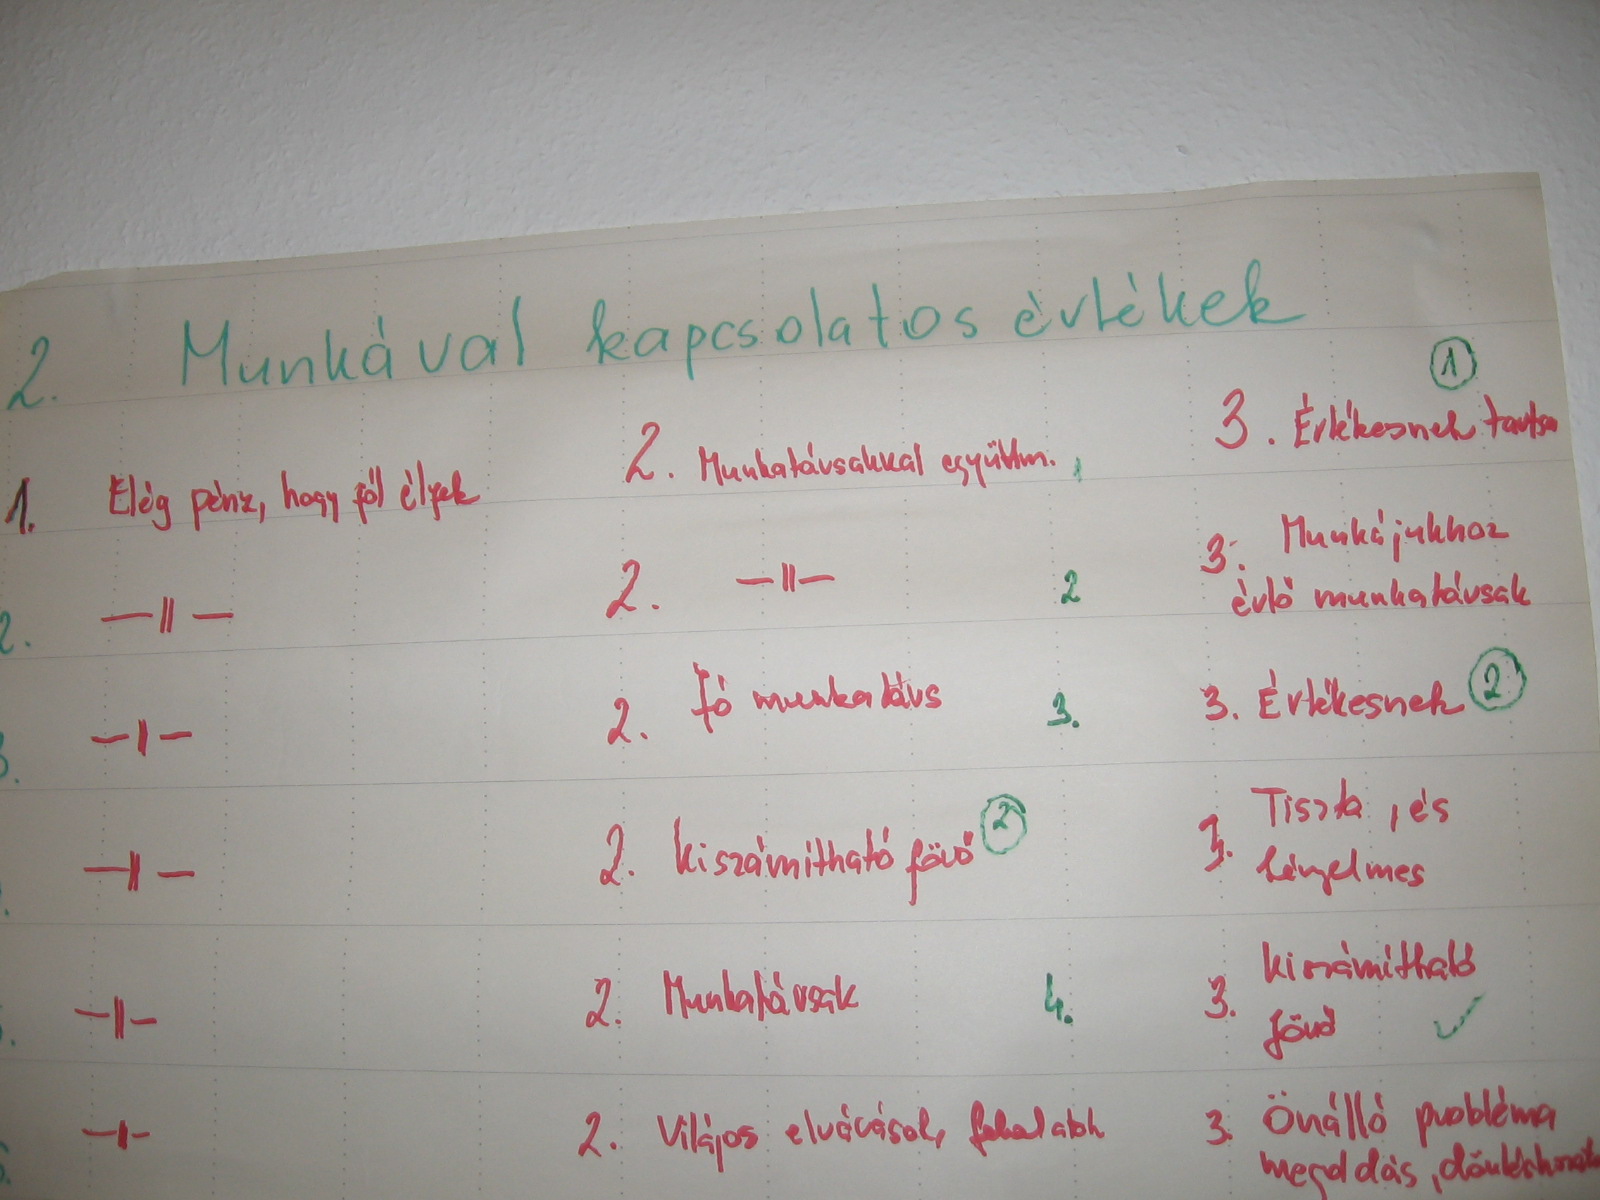 2. Munkával kapcsolatos értékek
1. Elég pénz, hogy jól éljek
2. Munkatársakkal együttm. 1
1
3. Értékesnek tartsa
2. —||—
2. —||— 2
3. Munkájukhoz
értő munkatársak
3. —|—
2. Jó munkatárs 3.
3. Értékesnek 2
—||—
2. Kiszámítható főnö 2
3. Tiszta, és
kényelmes
—||—
2. Munkatársak 4.
3. Kiszámítható
főnö ✓
—|—
2. Világos elvárások,
3. Önálló probléma
megoldás,